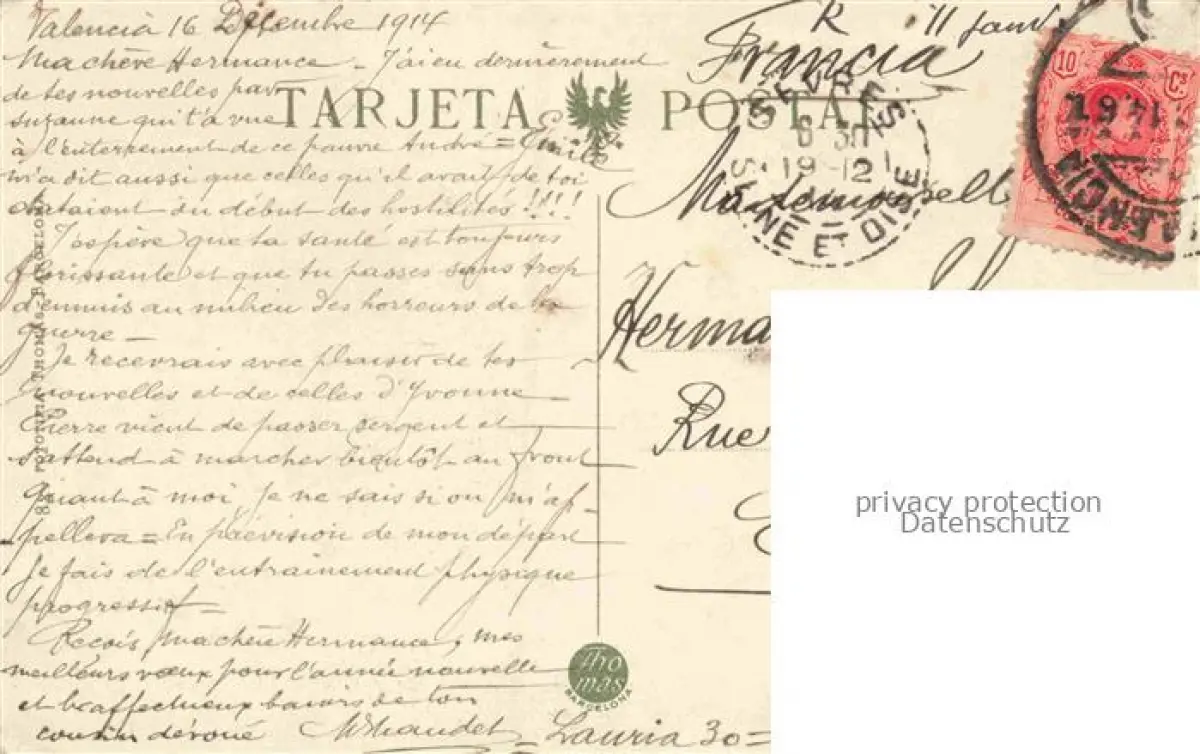 Valencia 16 Décembre 1914
Ma chère Hermance - J'ai eu dernièrement
de tes nouvelles par
suzanne qui t'a vue
à l'enterrement de ce pauvre André = Emile
m'a dit aussi que celles qu'il avait de toi
dataient du début des hostilités !!!!
J'espère que ta santé est toujours
florissante et que tu passes sans trop
d'ennuis au milieu des horreurs de la
guerre -
Je recevrais avec plaisir de tes
nouvelles et de celles d'Yvonne
Pierre vient de passer sergent et
s'attend à marcher bientôt au front
Quant à moi je ne sais si on m'ap-
pellera = En prévision de mon départ
Je fais de l'entrainement physique
progressif =
Reçois ma chère Hermance, mes
meilleurs vœux pour l'année nouvelle
et affectueux baisers de ton
cousin dévoué
= Lauria 30 =
TARJETA POSTAL
FOTOTIPIA THOMAS - BARCELONA
Thomas
BARCELONA
R 11
Francia
Mademoiselle
Herma
Rue
SEVRES
19-12
SEINE ET OISE
10 Cs
VALENCIA
privacy protection
Datenschutz